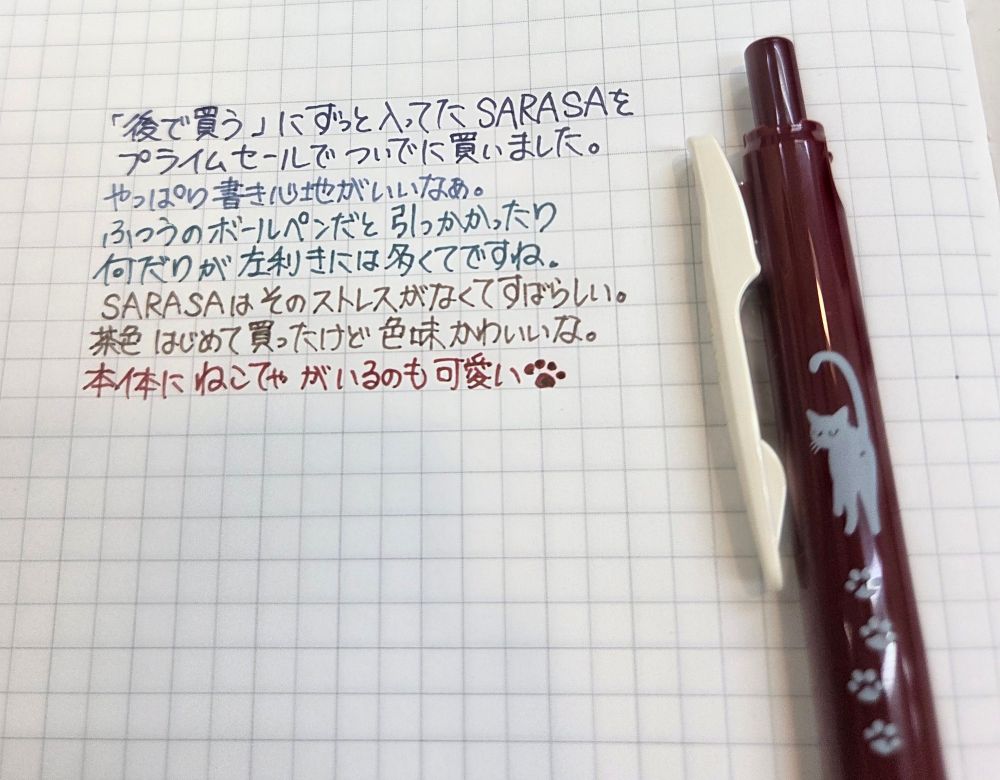 「後で買う」にずっと入ってたSARASAを
プライムセールでついでに買いました。
やっぱり書き心地がいいなぁ。
ふつうのボールペンだと引っかかったり
何だりが左利きには多くてですね。
SARASAはそのストレスがなくてすばらしい。
茶色はじめて買ったけど色味かわいいな。
本体にねこちゃがいるのも可愛い